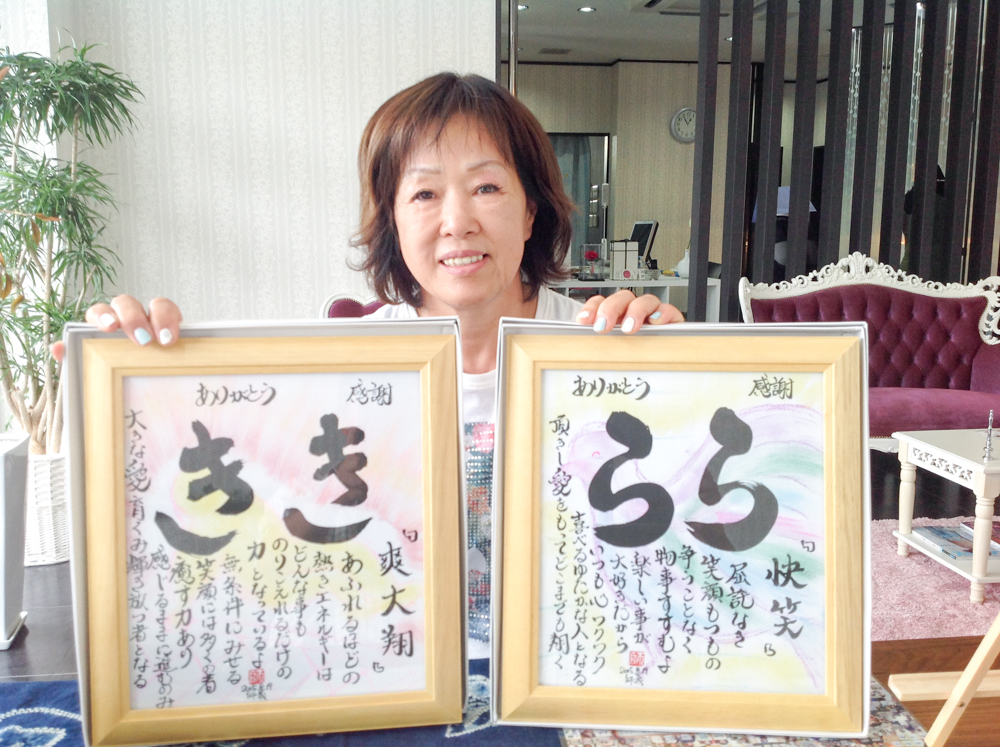 感謝
ありがとう
きき
「爽大翔」
あふれるほどの
熱きエネルギーは
どんな事も
のりこえれるだけの
力となっているよ
無条件にみせる
笑顔には多くの者
癒す力あり
感じるままに進むのみ
大きな愛育くみ輝き放つ者となる
感謝
ありがとう
らら
「快笑」
屈託なき
笑顔もつもの
争うことなく
物事すすむよ
楽しい事が
大好きだから
いつも心ワクワク
喜べるゆたかな人となる
頂きし愛をもってどこまでも翔く